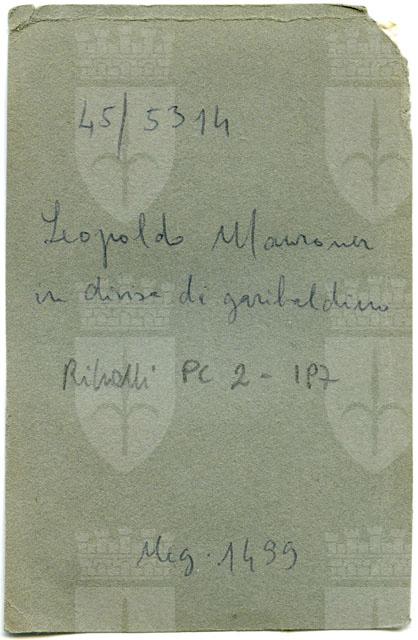 45/5314
Leopoldo Mauroner
in divisa di garibaldino
Ritratti PC 2 - IP7
Neg. 1499